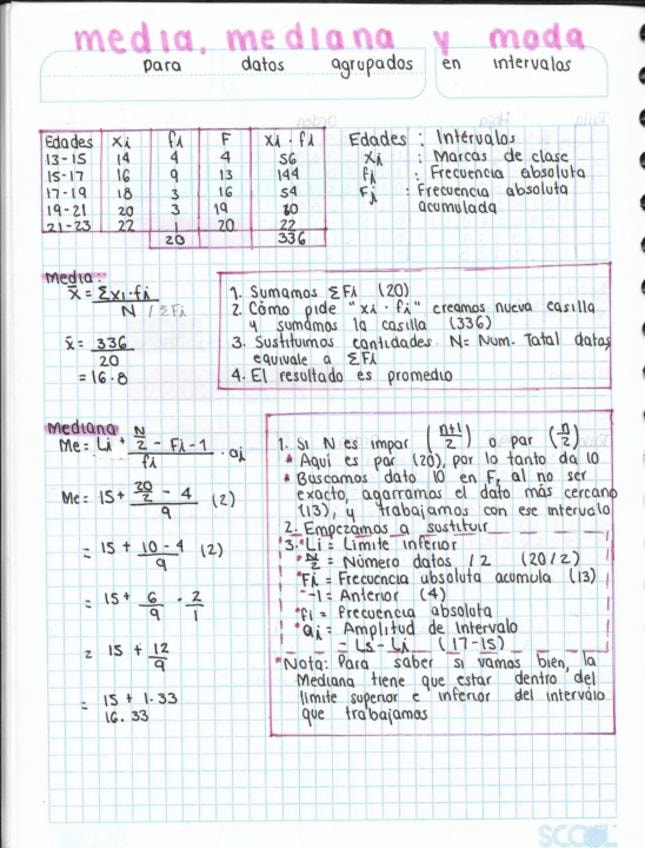 media, mediana y moda
para datos agrupados en intervalos
Edades xi fi F xi · fi
13-15 14 4 4 56
15-17 16 9 13 144
17-19 18 3 16 54
19-21 20 3 19 60
21-23 22 1 20 22
20 336
Edades : Intervalos
xi : Marcas de clase
fi : Frecuencia absoluta
Fi : Frecuencia absoluta
acumulada
Media:
x̄ = Σxi·fi / N / ΣFi
x̄ = 336 / 20
= 16.8
1. Sumamos ΣFi (20)
2. Cómo pide "xi · fi" creamos nueva casilla
y sumamos la casilla (336)
3. Sustituimos cantidades N= Num. Total datos
equivale a ΣFi
4. El resultado es promedio
Mediana
Me= Li + N/2 - Fi-1 / fi · ai
Me= 15+ 20/2 - 4 / 9 (2)
= 15 + 10-4 / 9 (2)
= 15+ 6/9 · 2/1
= 15 + 12/9
= 15 + 1.33
16.33
1. Si N es impar (n+1/2) o par (n/2)
* Aquí es par (20), por lo tanto da 10
* Buscamos dato 10 en F, al no ser
exacto, agarramos el dato más cercano
(13), y trabajamos con ese intervalo
2. Empezamos a sustituir
3. * Li = Limite inferior
* N/2 = Número datos / 2 (20/2)
* Fi = Frecuencia absoluta acumula (13)
* -1 = Anterior (4)
* fi = frecuencia absoluta
* ai = Amplitud de Intervalo
- Ls - Li (17-15)
* Nota: Para saber si vamos bien, la
Mediana tiene que estar dentro del
limite superior e inferior del intervalo
que trabajamos
SCOOL